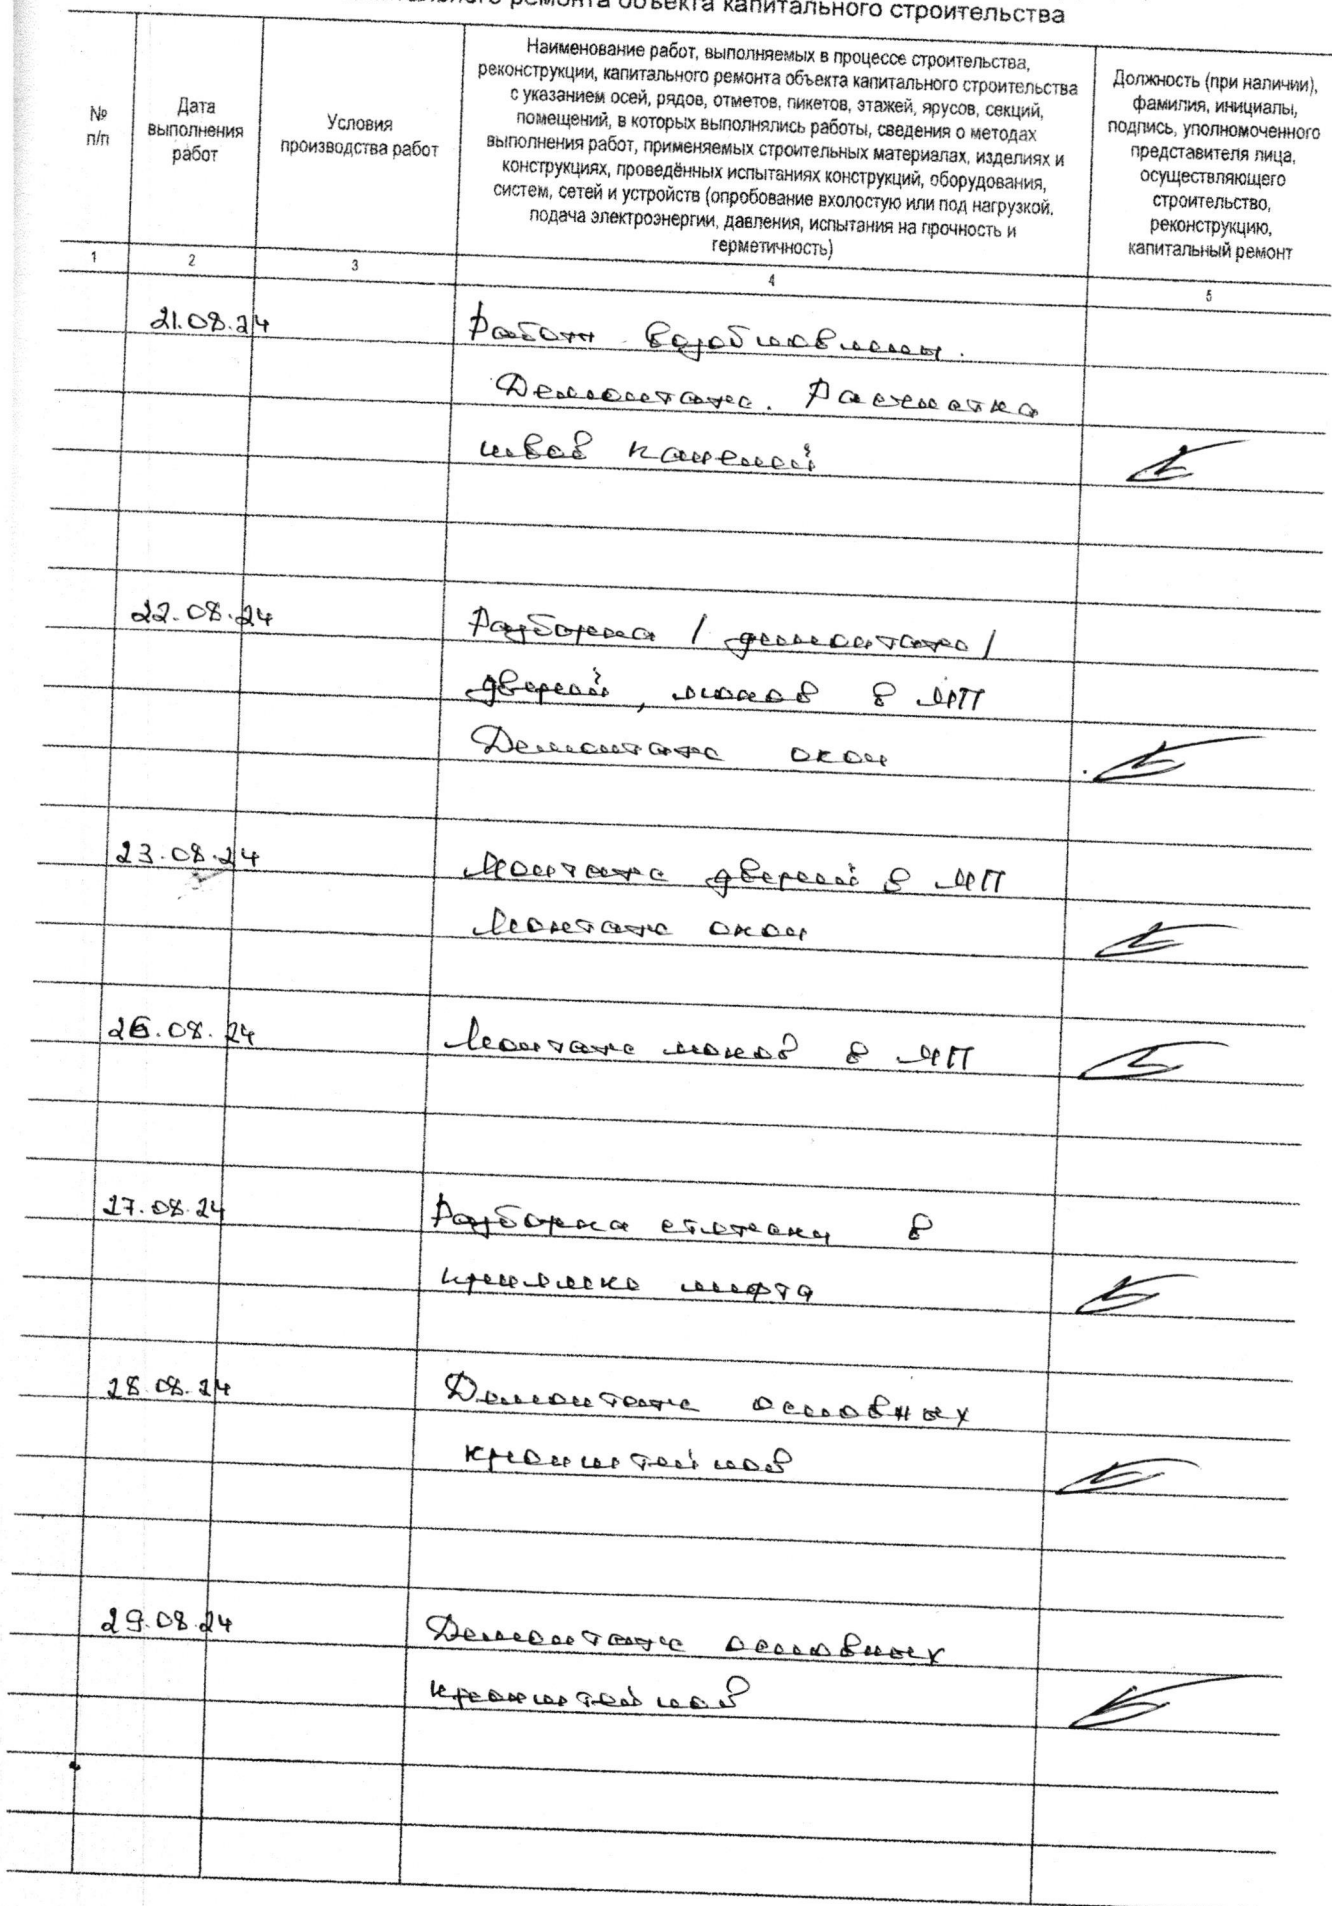 ального ремонта объекта капитального строительства
№
п/п
Дата
выполнения
работ
Условия
производства работ
Наименование работ, выполняемых в процессе строительства,
реконструкции, капитального ремонта объекта капитального строительства
с указанием осей, рядов, отметов, пикетов, этажей, ярусов, секций,
помещений, в которых выполнялись работы, сведения о методах
выполнения работ, применяемых строительных материалах, изделиях и
конструкциях, проведённых испытаниях конструкций, оборудования,
систем, сетей и устройств (опробование вхолостую или под нагрузкой,
подача электроэнергии, давления, испытания на прочность и
герметичность)
Должность (при наличии),
фамилия, инициалы,
подпись, уполномоченного
представителя лица,
осуществляющего
строительство,
реконструкцию,
капитальный ремонт
1 2 3 4 5
21.08.24 Работы возобновлены.
Демонтаж. Расчистка
швов панелей
22.08.24 Разборка / демонтаж /
дверей, люков в МП
Демонтаж окон
23.08.24 Монтаж дверей в МП
Монтаж окон
26.08.24 Монтаж люков в МП
27.08.24 Разборка стяжки в
приямке лифта
28.08.24 Демонтаж основных
кронштейнов
29.08.24 Демонтаж основных
кронштейнов